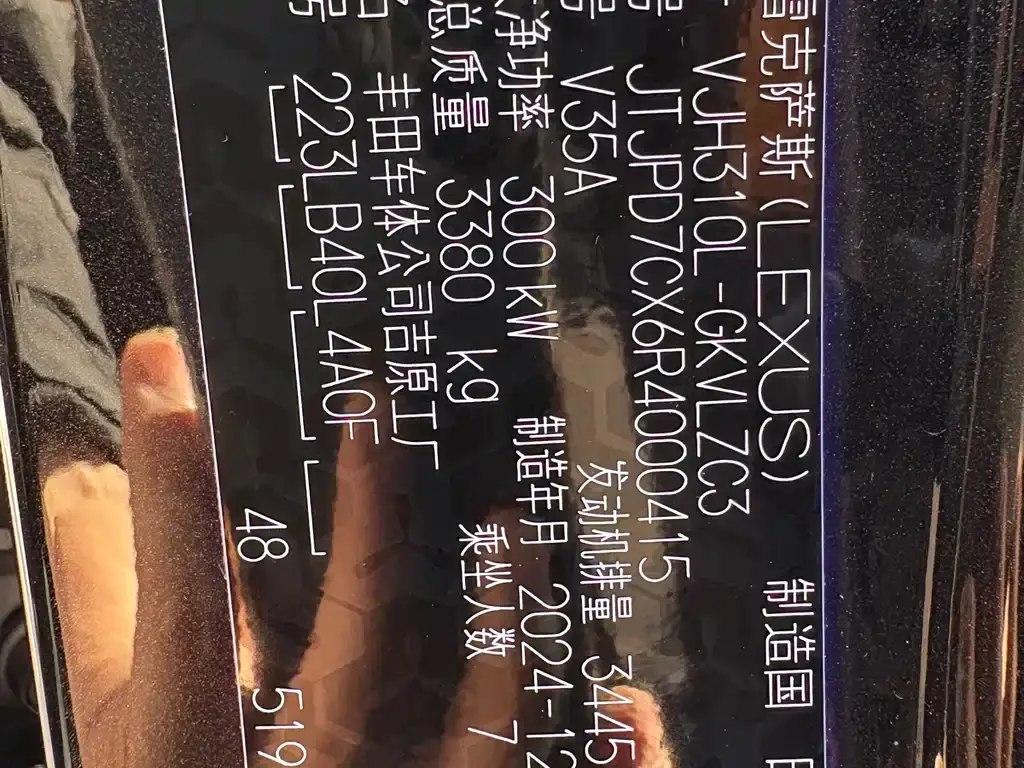 雷克萨斯(LEXUS) 制造国
VJH310L-GKVLZC3
号 JTJPD7CX6R4000415
号 V35A 发动机排量 3445
净功率 300 kW 制造年月 2024-12
总质量 3380 kg 乘坐人数 7
名 丰田车体公司吉原工厂
号 223LB40L4A0F
48 519